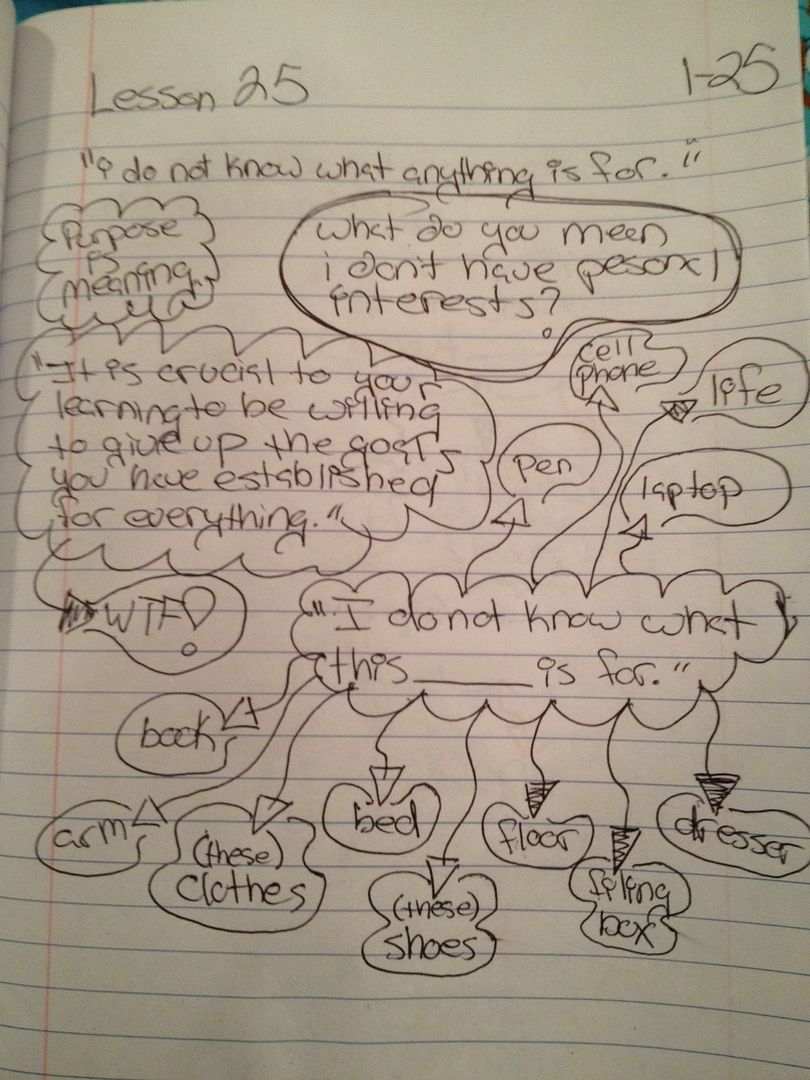 Lesson 25
1-25
"i do not know what anything is for."
Purpose
is
meaning.
what do you meen
i don't have pesonal
interests?
"It is crucial to your
learning to be willing
to give up the goals
you have established
for everything."
cell
phone
life
pen
laptop
WTF?
"I do not know what
this ______ is for."
book
arm
(these)
clothes
bed
(these)
shoes
floor
filing
box
dresser